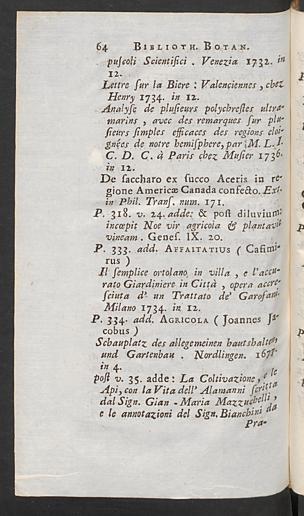 64 BIBLIOTH. BOTAN.
puscoli Scientifici . Venezia 1732. in
12.
Lettre sur la Biere : Valenciennes , chez
Henry 1734. in 12.
Analyse de plusieurs polychrestes ultra-
marins , avec des remarques sur plu-
sieurs simples efficaces des regions eloi-
gnées de notre hemisphere, par M. L. J.
C. D. C. à Paris chez Musier 1736.
in 12.
De saccharo ex succo Aceris in re-
gione Americæ Canada confecto. Ext.
in Phil. Trans. num. 171.
P. 318. v. 24. adde: & post diluvium:
incœpit Noe vir agricola & plantavit
vineam . Genes. IX. 20.
P. 333. add. AFFAITATIUS ( Casimi-
rus )
Il semplice ortolano in villa , e l'accu-
rato Giardiniere in Città , opera accre-
sciuta d' un Trattato de' Garofani.
Milano 1734. in 12.
P. 334. add. AGRICOLA ( Joannes Ja-
cobus )
Schauplatz des allegemeinen haushaltens,
und Gartenbau . Nordlingen.
in 4.
post v. 35. adde : La Coltivazione, e le
Api, con la Vita dell' Alamanni scritta
dal Sign. Gian - Maria Mazzuchelli ,
e le annotazioni del Sign. Bianchini da
Pra-